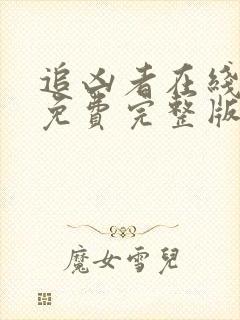 追凶者在线
免費完整版
魔女雪兒